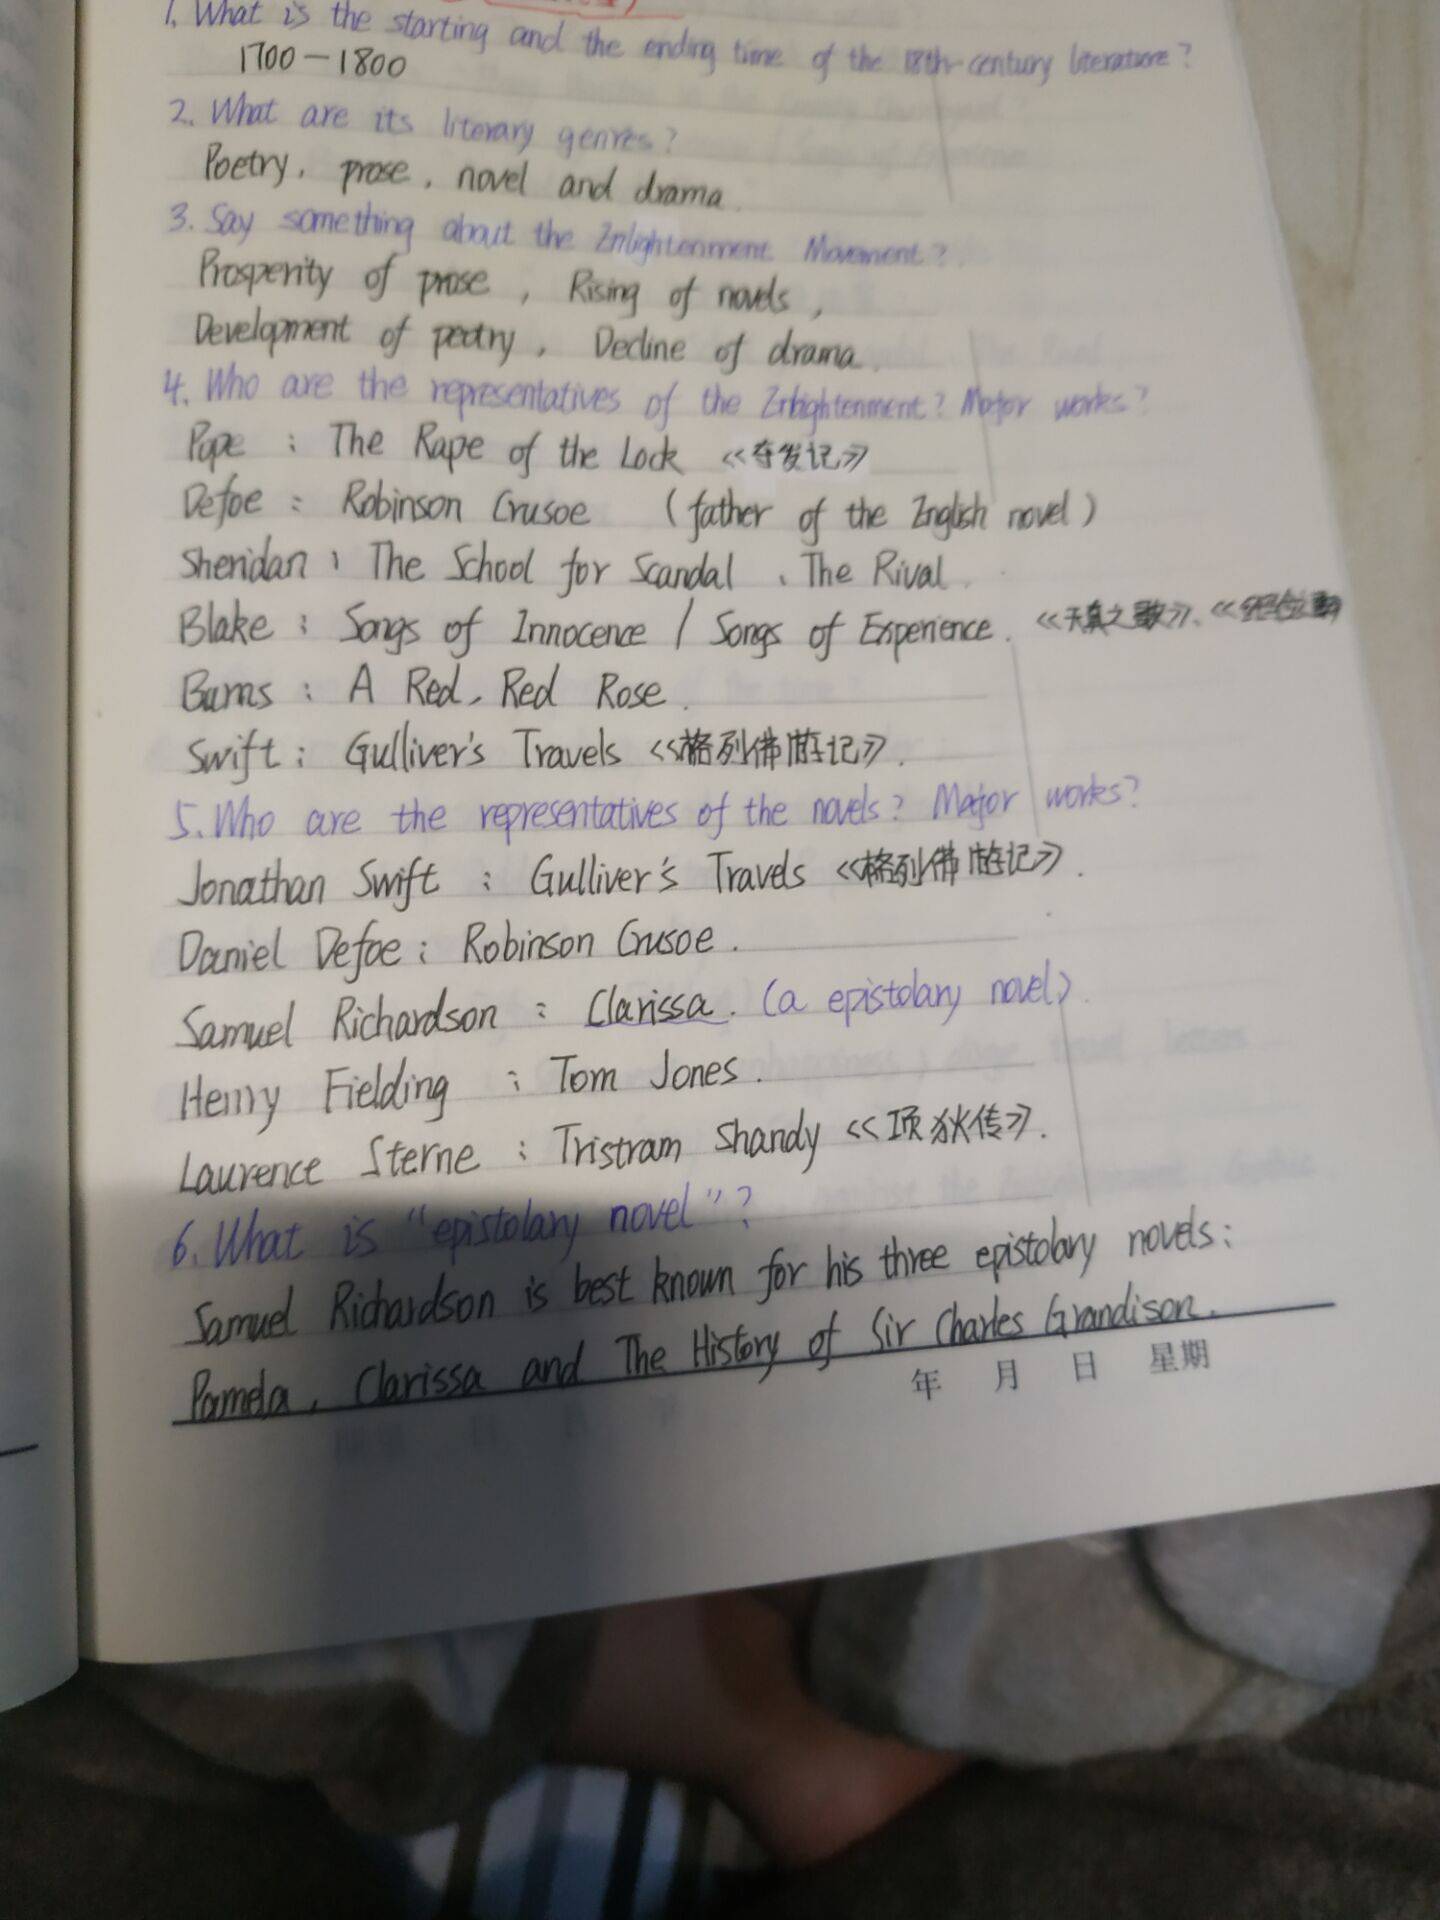 1. What is the starting and the ending time of the 18th-century literature?
1700-1800
2. What are its literary genres?
Poetry, prose, novel and drama.
3. Say something about the Enlightenment Movement?
Prosperity of prose, Rising of novels,
Development of poetry, Decline of drama.
4. Who are the representatives of the Enlightenment? Major works?
Pope: The Rape of the Lock《夺发记》
Defoe: Robinson Crusoe (father of the English novel)
Sheridan: The School for Scandal、The Rival.
Blake: Songs of Innocence / Songs of Experience.《天真之歌》、《经验之歌
Burns: A Red, Red Rose.
Swift: Gulliver's Travels《格列佛游记》.
5. Who are the representatives of the novels? Major works?
Jonathan Swift: Gulliver's Travels《格列佛游记》.
Daniel Defoe: Robinson Crusoe.
Samuel Richardson: Clarissa. (a epistolary novel).
Henry Fielding: Tom Jones.
Laurence Sterne: Tristram Shandy《项狄传》.
6. What is "epistolary novel"?
Samuel Richardson is best known for his three epistolary novels:
Pamela, Clarissa and The History of Sir Charles Grandison.
年 月 日 星期